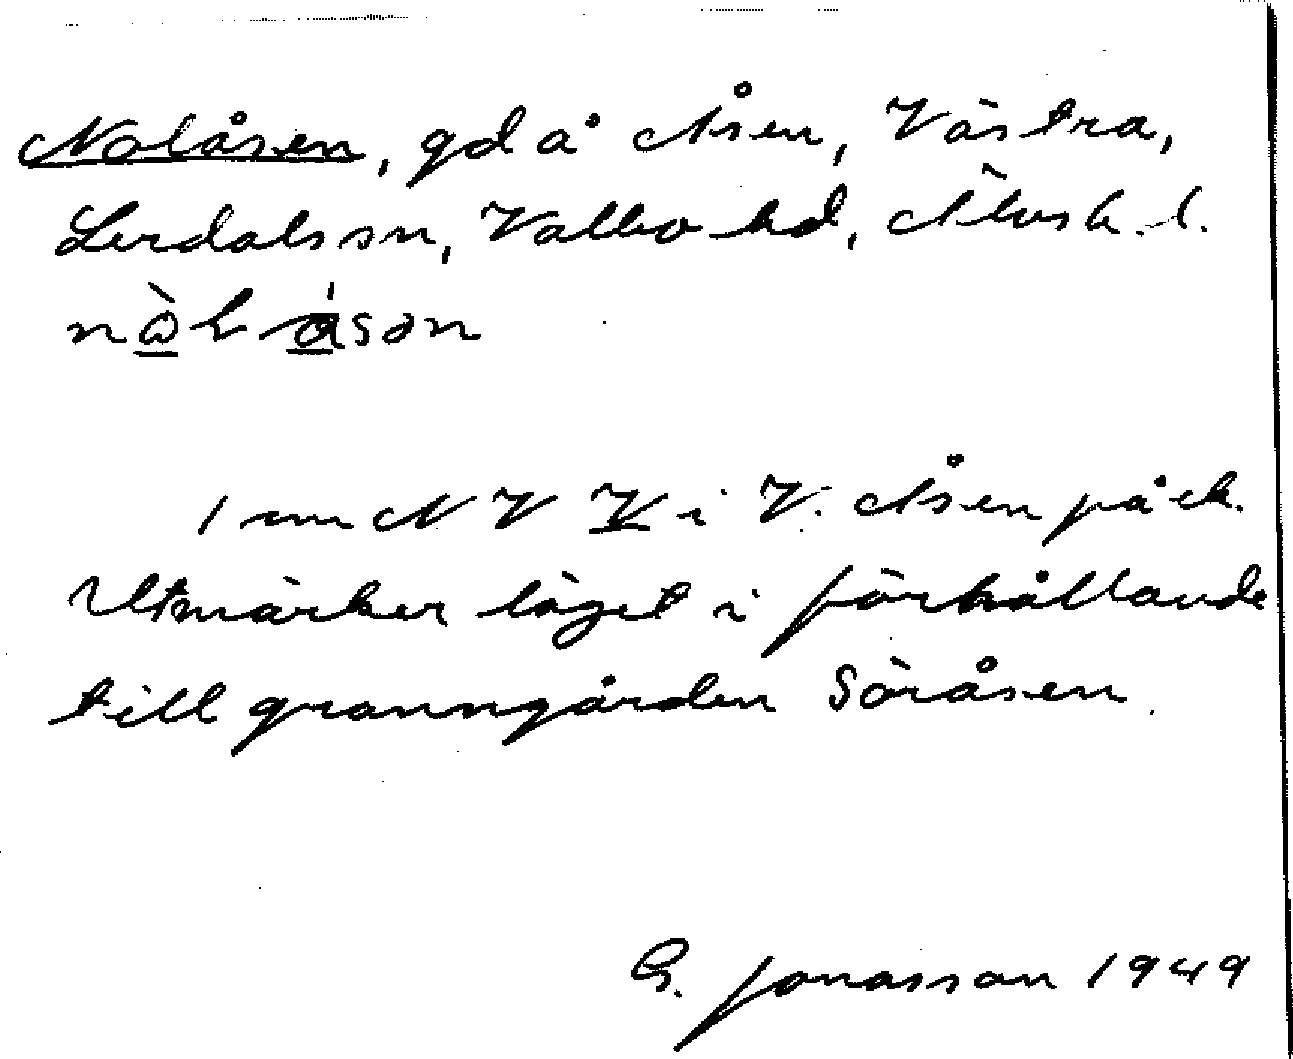 Nolåsen, gd å Åsen, Västra,
Lerdals sn, Valbo hd, Älvsb. l.
nɷ̀låsən
1 mm N V V i V. Åsen på ek.
Utmärker läget i förhållande
till granngården Söråsen.
G. Jonasson 1949